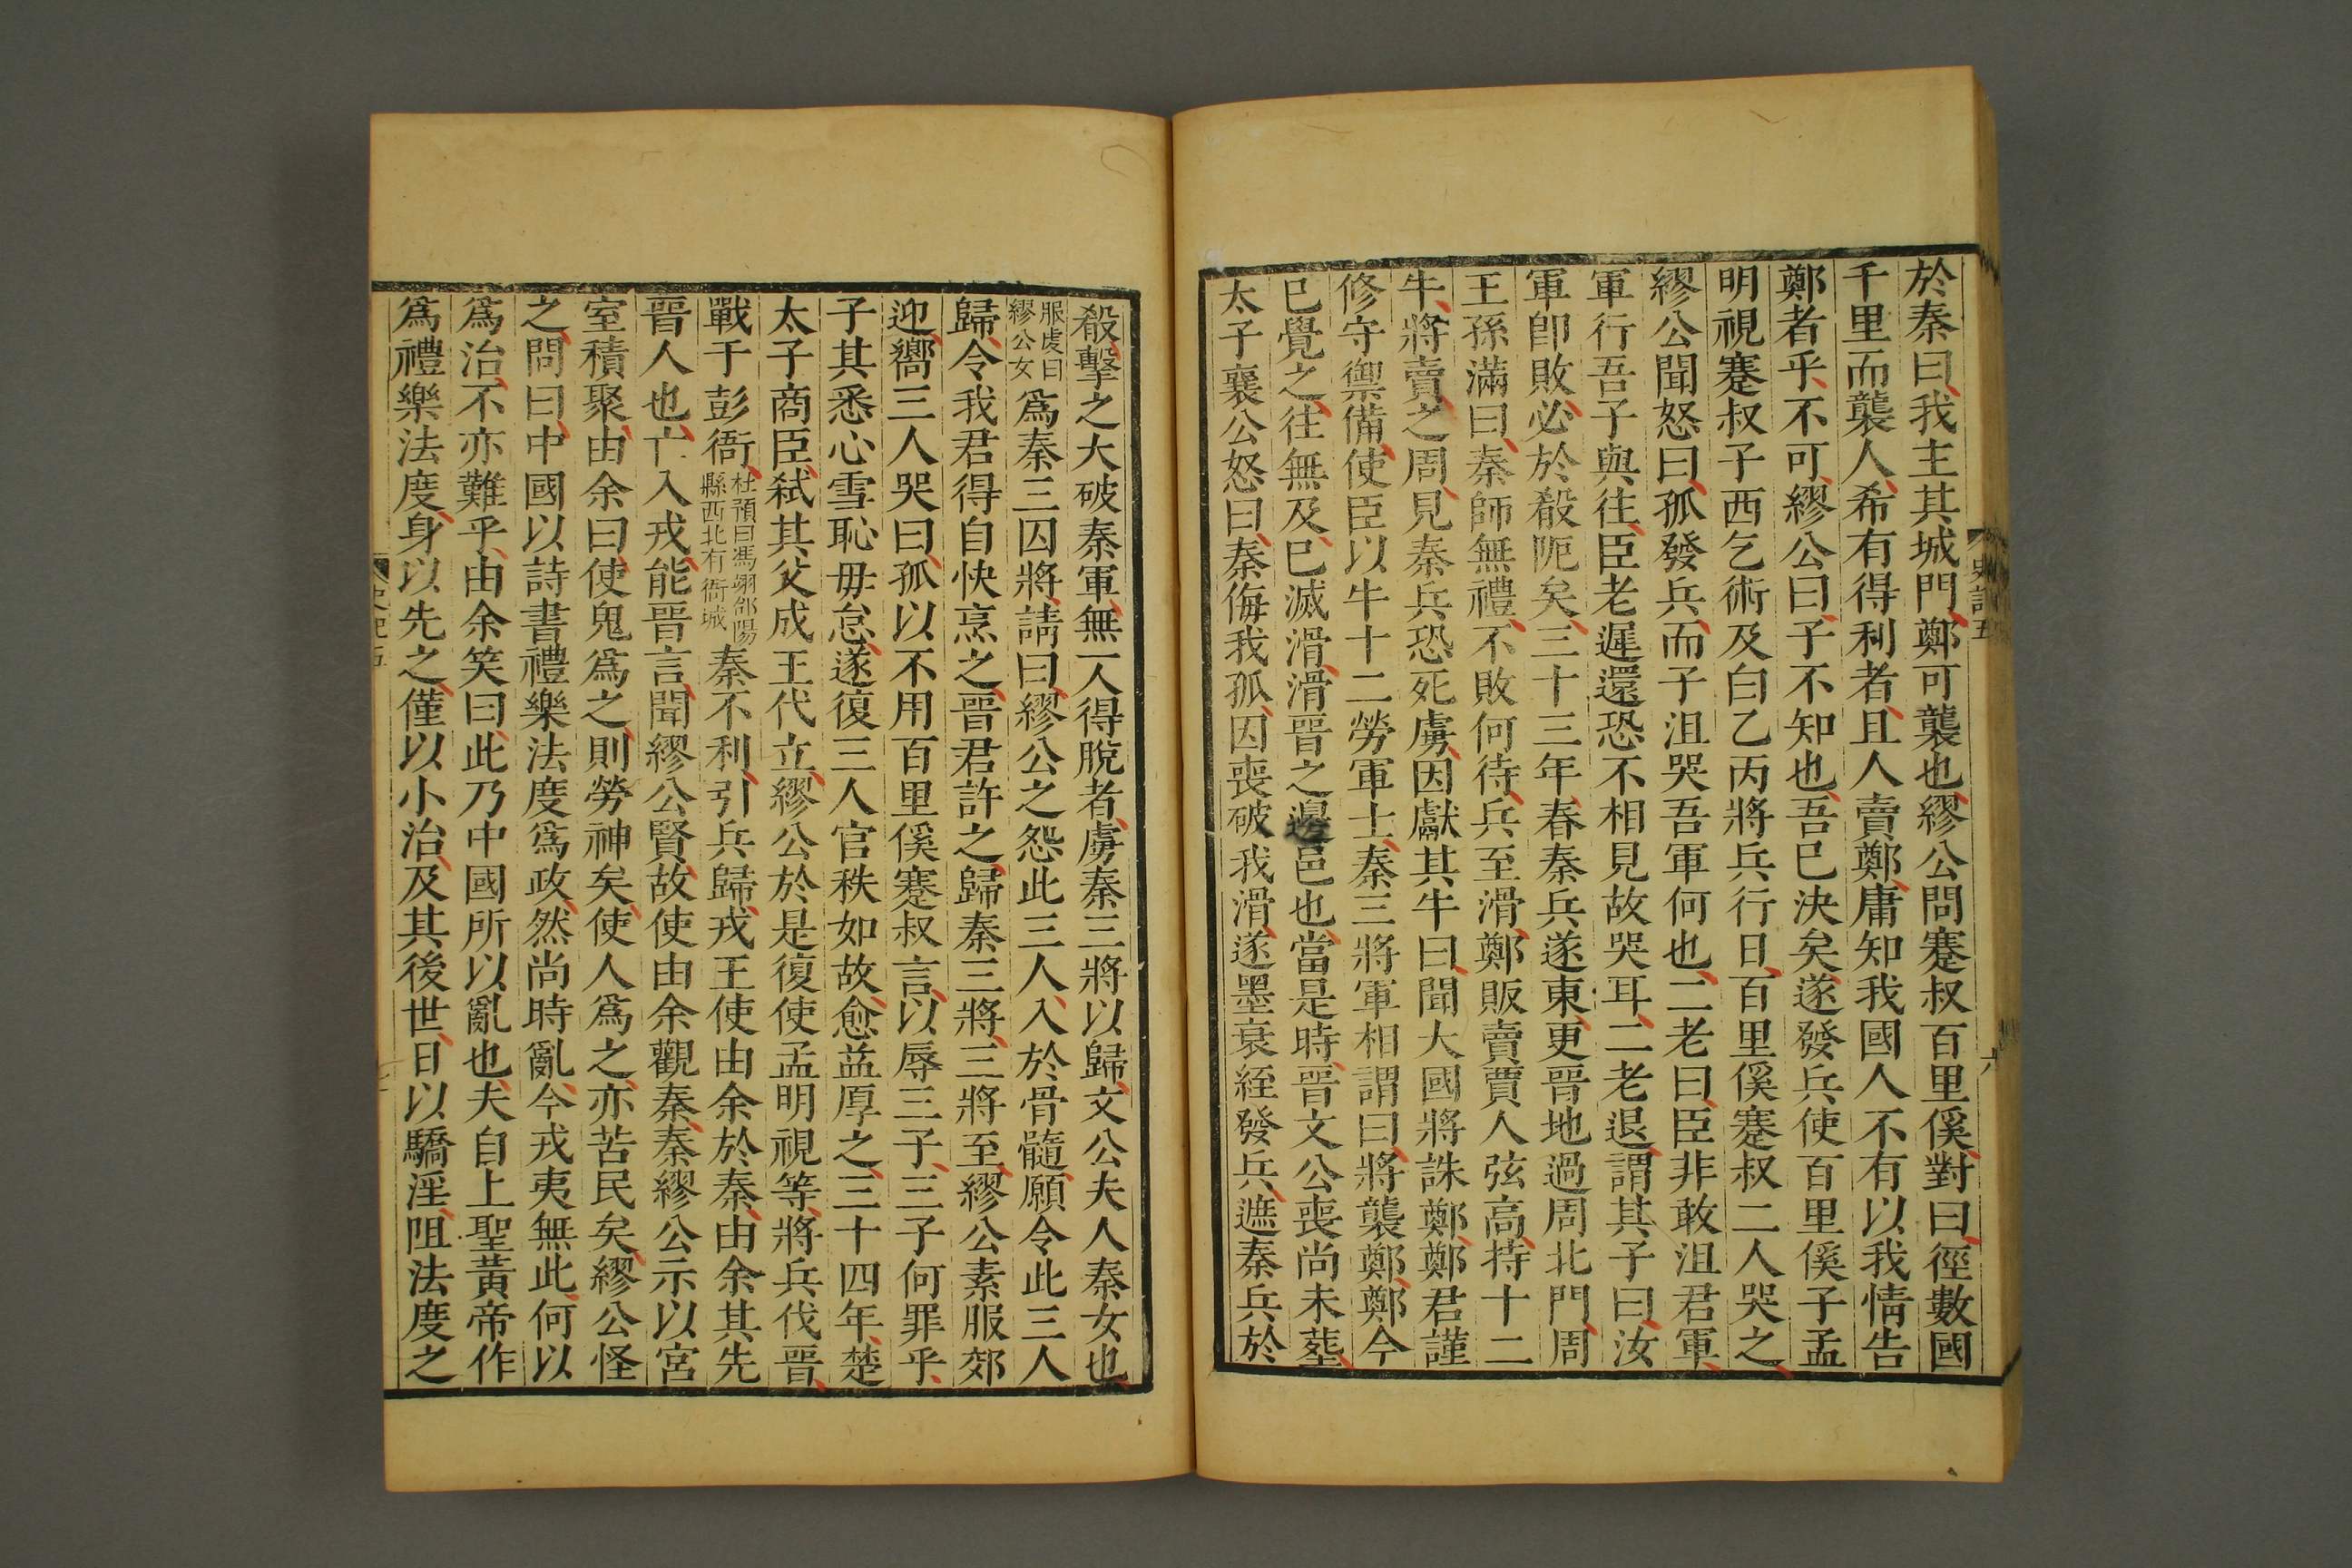 於秦曰我主其城門鄭可襲也繆公問蹇叔百里傒對曰徑數國
千里而襲人希有得利者且人賣鄭庸知我國人不有以我情告
鄭者乎不可繆公曰子不知也吾已決矣遂發兵使百里傒子孟
明視蹇叔子西乞術及白乙丙將兵行日百里傒蹇叔二人哭之
繆公聞怒曰孤發兵而子沮哭吾軍何也二老曰臣非敢沮君軍
軍行吾子與往臣老遲還恐不相見故哭耳二老退謂其子曰汝
軍卽敗必於殽阨矣三十三年春秦兵遂東更晉地過周北門周
王孫滿曰秦師無禮不敗何待兵至滑鄭販賣賈人弦高持十二
牛將賣之周見秦兵恐死虜因獻其牛曰聞大國將誅鄭鄭君謹
修守禦備使臣以牛十二勞軍士秦三將軍相謂曰將襲鄭鄭今
已覺之往無及已滅滑滑晉之邊邑也當是時晉文公喪尚未葬
太子襄公怒曰秦侮我孤因喪破我滑遂墨衰絰發兵遮秦兵於
史記五
六
殽擊之大破秦軍無一人得脫者虜秦三將以歸文公夫人秦女也
服虔曰
繆公女
爲秦三囚將請曰繆公之怨此三人入於骨髓願令此三人
歸令我君得自快烹之晉君許之歸秦三將三將至繆公素服郊
迎嚮三人哭曰孤以不用百里傒蹇叔言以辱三子三子何罪乎
子其悉心雪恥毋怠遂復三人官秩如故愈益厚之三十四年楚
太子商臣弑其父成王代立繆公於是復使孟明視等將兵伐晉
戰于彭衙
杜預曰馮翊郃陽
縣西北有衙城
秦不利引兵歸戎王使由余於秦由余其先
晉人也亡入戎能晉言聞繆公賢故使由余觀秦秦繆公示以宮
室積聚由余曰使鬼爲之則勞神矣使人爲之亦苦民矣繆公怪
之問曰中國以詩書禮樂法度爲政然尚時亂今戎夷無此何以
爲治不亦難乎由余笑曰此乃中國所以亂也夫自上聖黃帝作
爲禮樂法度身以先之僅以小治及其後世日以驕淫阻法度之
史記五